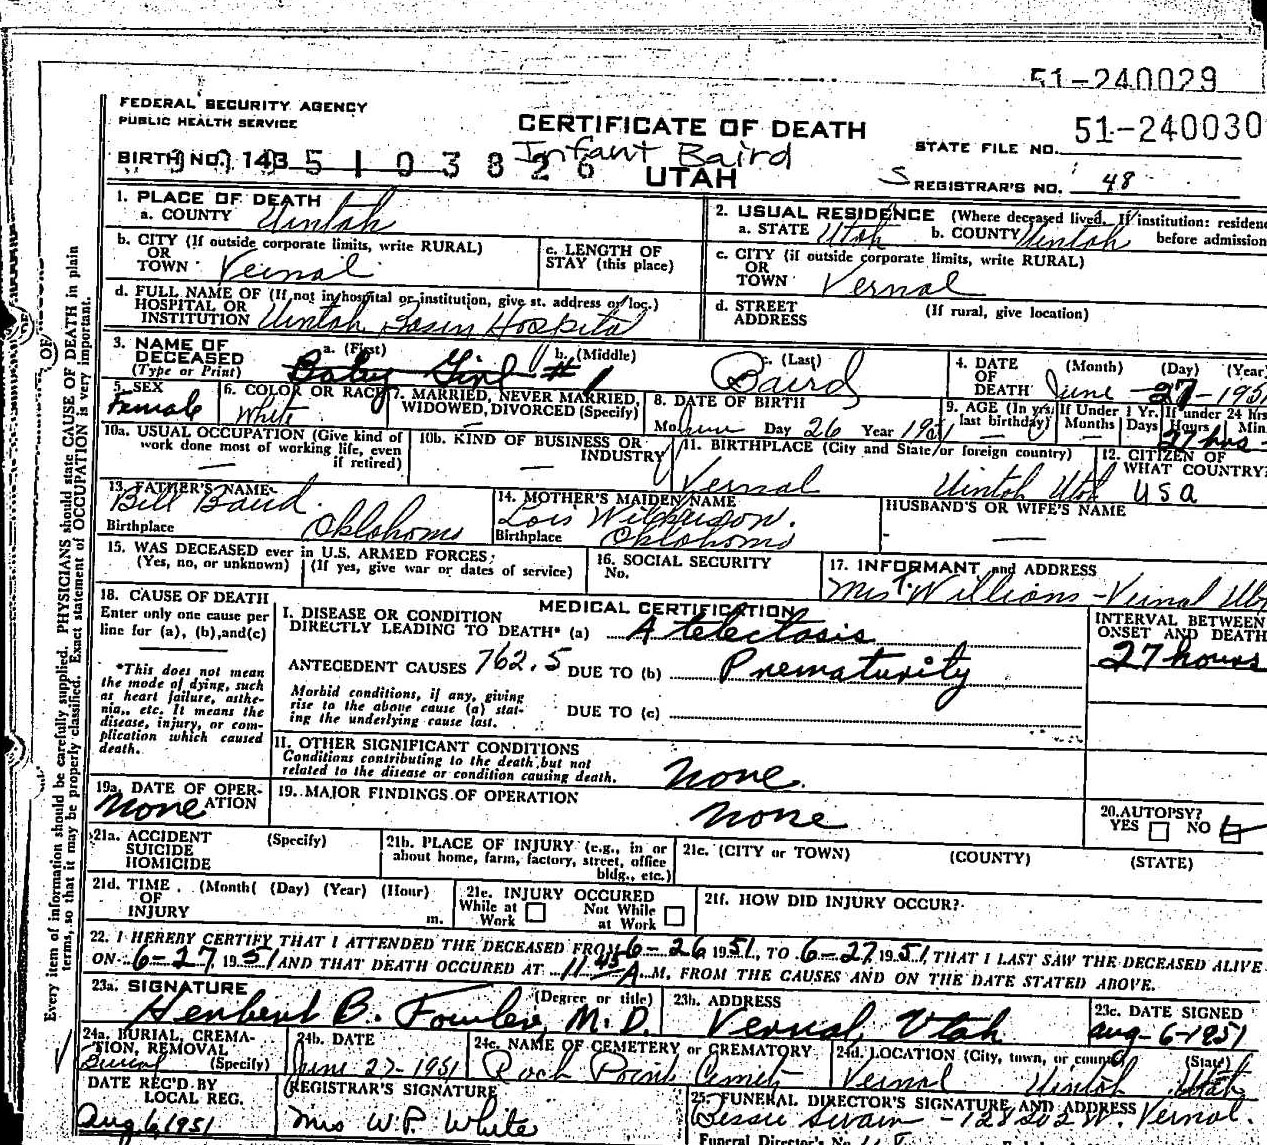 51-240029
FEDERAL SECURITY AGENCY
PUBLIC HEALTH SERVICE
CERTIFICATE OF DEATH
STATE FILE NO. 51-240030
BIRTH NO. 143
Infant Baird
UTAH
REGISTRAR'S NO. 48
1. PLACE OF DEATH
a. COUNTY Uintah
2. USUAL RESIDENCE (Where deceased lived. If institution: residence before admission
a. STATE Utah b. COUNTY Uintah
b. CITY (If outside corporate limits, write RURAL) OR TOWN Vernal
c. LENGTH OF STAY (this place)
c. CITY (if outside corporate limits, write RURAL) OR TOWN Vernal
d. FULL NAME OF (If not in hospital or institution, give st. address or loc.) HOSPITAL OR INSTITUTION Uintah Basin Hospital
d. STREET ADDRESS (If rural, give location)
3. NAME OF DECEASED (Type or Print)
a. (First) Baby Girl #1 b. (Middle) c. (Last) Baird
4. DATE OF DEATH (Month) (Day) (Year) June 27-1951
5. SEX Female
6. COLOR OR RACE White
7. MARRIED, NEVER MARRIED, WIDOWED, DIVORCED (Specify) —
8. DATE OF BIRTH Mo June Day 26 Year 1951
9. AGE (In yrs. last birthday) — If Under 1 Yr. Months — Days If under 24 Hrs Hours Min. 27 hrs -
10a. USUAL OCCUPATION (Give kind of work done most of working life, even if retired) —
10b. KIND OF BUSINESS OR INDUSTRY —
11. BIRTHPLACE (City and State/or foreign country) Vernal Uintah Utah
12. CITIZEN OF WHAT COUNTRY? USA
13. FATHER'S NAME Bill Baird
Birthplace Oklahoma
14. MOTHER'S MAIDEN NAME Lois
Birthplace Oklahoma
HUSBAND'S OR WIFE'S NAME —
15. WAS DECEASED ever in U.S. ARMED FORCES? (Yes, no, or unknown) (If yes, give war or dates of service)
16. SOCIAL SECURITY No.
17. INFORMANT and ADDRESS
Mrs T. Williams - Vernal Utah
18. CAUSE OF DEATH
Enter only one cause per line for (a), (b), and (c)
MEDICAL CERTIFICATION
INTERVAL BETWEEN ONSET AND DEATH
I. DISEASE OR CONDITION DIRECTLY LEADING TO DEATH* (a) Atelectasis
27 hours
*This does not mean the mode of dying, such as heart failure, asthenia, etc. It means the disease, injury, or complication which caused death.
ANTECEDENT CAUSES 762.5 DUE TO (b) Prematurity
Morbid conditions, if any, giving rise to the above cause (a) stating the underlying cause last.
DUE TO (c)
II. OTHER SIGNIFICANT CONDITIONS
Conditions contributing to the death but not related to the disease or condition causing death. none
19a. DATE OF OPERATION none
19. MAJOR FINDINGS OF OPERATION none
20. AUTOPSY? YES NO
21a. ACCIDENT SUICIDE HOMICIDE (Specify)
21b. PLACE OF INJURY (e.g., in or about home, farm, factory, street, office bldg., etc.)
21c. (CITY or TOWN) (COUNTY) (STATE)
21d. TIME OF INJURY (Month( (Day) (Year) (Hour) m.
21e. INJURY OCCURED While at Work Not While at Work
21f. HOW DID INJURY OCCUR?
22. I HEREBY CERTIFY THAT I ATTENDED THE DECEASED FROM 6-26 1951, TO 6-27 1951, THAT I LAST SAW THE DECEASED ALIVE
ON 6-27 1951 AND THAT DEATH OCCURED AT 11 45 A M, FROM THE CAUSES AND ON THE DATE STATED ABOVE.
23a. SIGNATURE (Degree or title) Herbert B. Fowler, M.D.
23b. ADDRESS Vernal, Utah
23c. DATE SIGNED Aug-6-1951
24a. BURIAL, CREMATION, REMOVAL (Specify) Burial
24b. DATE June 27-1951
24c. NAME OF CEMETERY or CREMATORY Rock Point Cemety
24d. LOCATION (City, town, or county) (State) Vernal Uintah Utah
DATE REC'D BY LOCAL REG. Aug 6, 1951
REGISTRAR'S SIGNATURE Mrs W.P. White
25. FUNERAL DIRECTOR'S SIGNATURE AND ADDRESS
Bessie Swain Vernal.
Funeral Director's No.
Every item of information should be carefully supplied. PHYSICIANS should state CAUSE OF DEATH in plain
terms, so that it may be properly classified. Exact statement of OCCUPATION is very important.